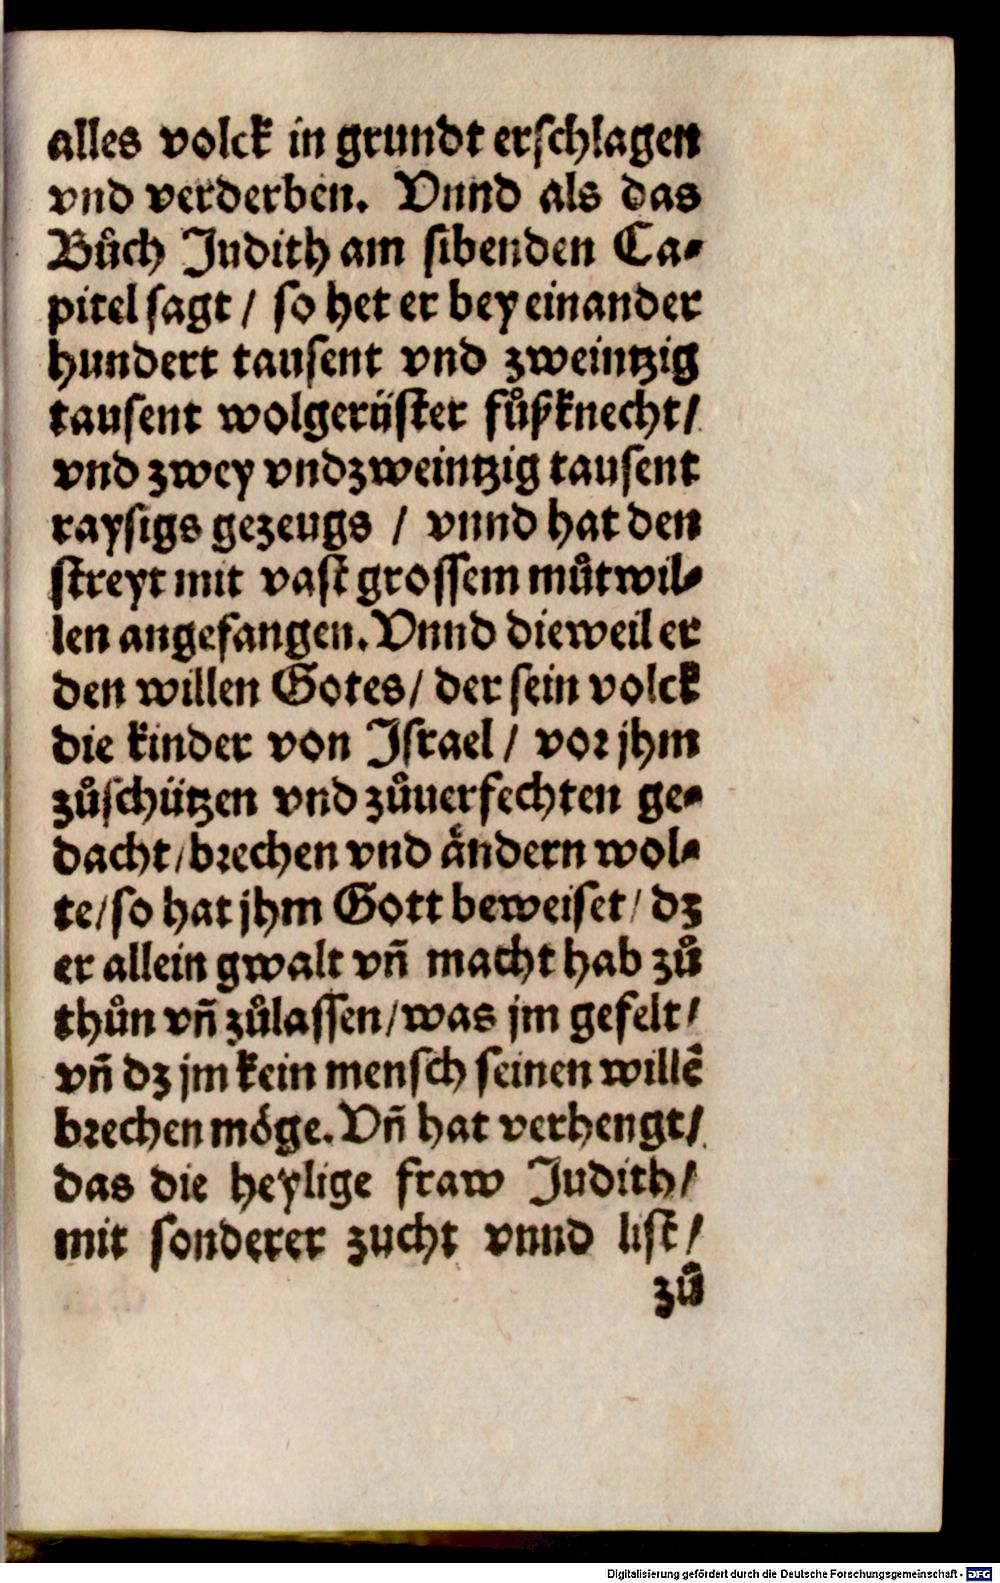 alles volck in grundt erschlagen
vnd verderben. Vnnd als das
Bůch Judith am sibenden Ca-
pitel sagt / so het er bey einander
hundert tausent vnd zweintzig
tausent wolgerüster fůßknecht /
vnd zwey vndzweintzig tausent
raysigs gezeugs / vnnd hat den
streyt mit vast grossem můtwil-
len angefangen. Vnnd dieweil er
den willen Gotes / der sein volck
die kinder von Israel / vor jhm
zůschützen vnd zůuerfechten ge-
dacht / brechen vnd aͤndern wol-
te / so hat jhm Gott beweiset / dz
er allein gwalt vñ macht hab zů
thůn vñ zůlassen / was jm gefelt /
vñ dz jm kein mensch seinen willē
brechen möge. Vñ hat verhengt /
das die heylige fraw Judith /
mit sonderer zucht vnnd list /
zů
Digitalisierung gefördert durch die Deutsche Forschungsgemeinschaft - DFG